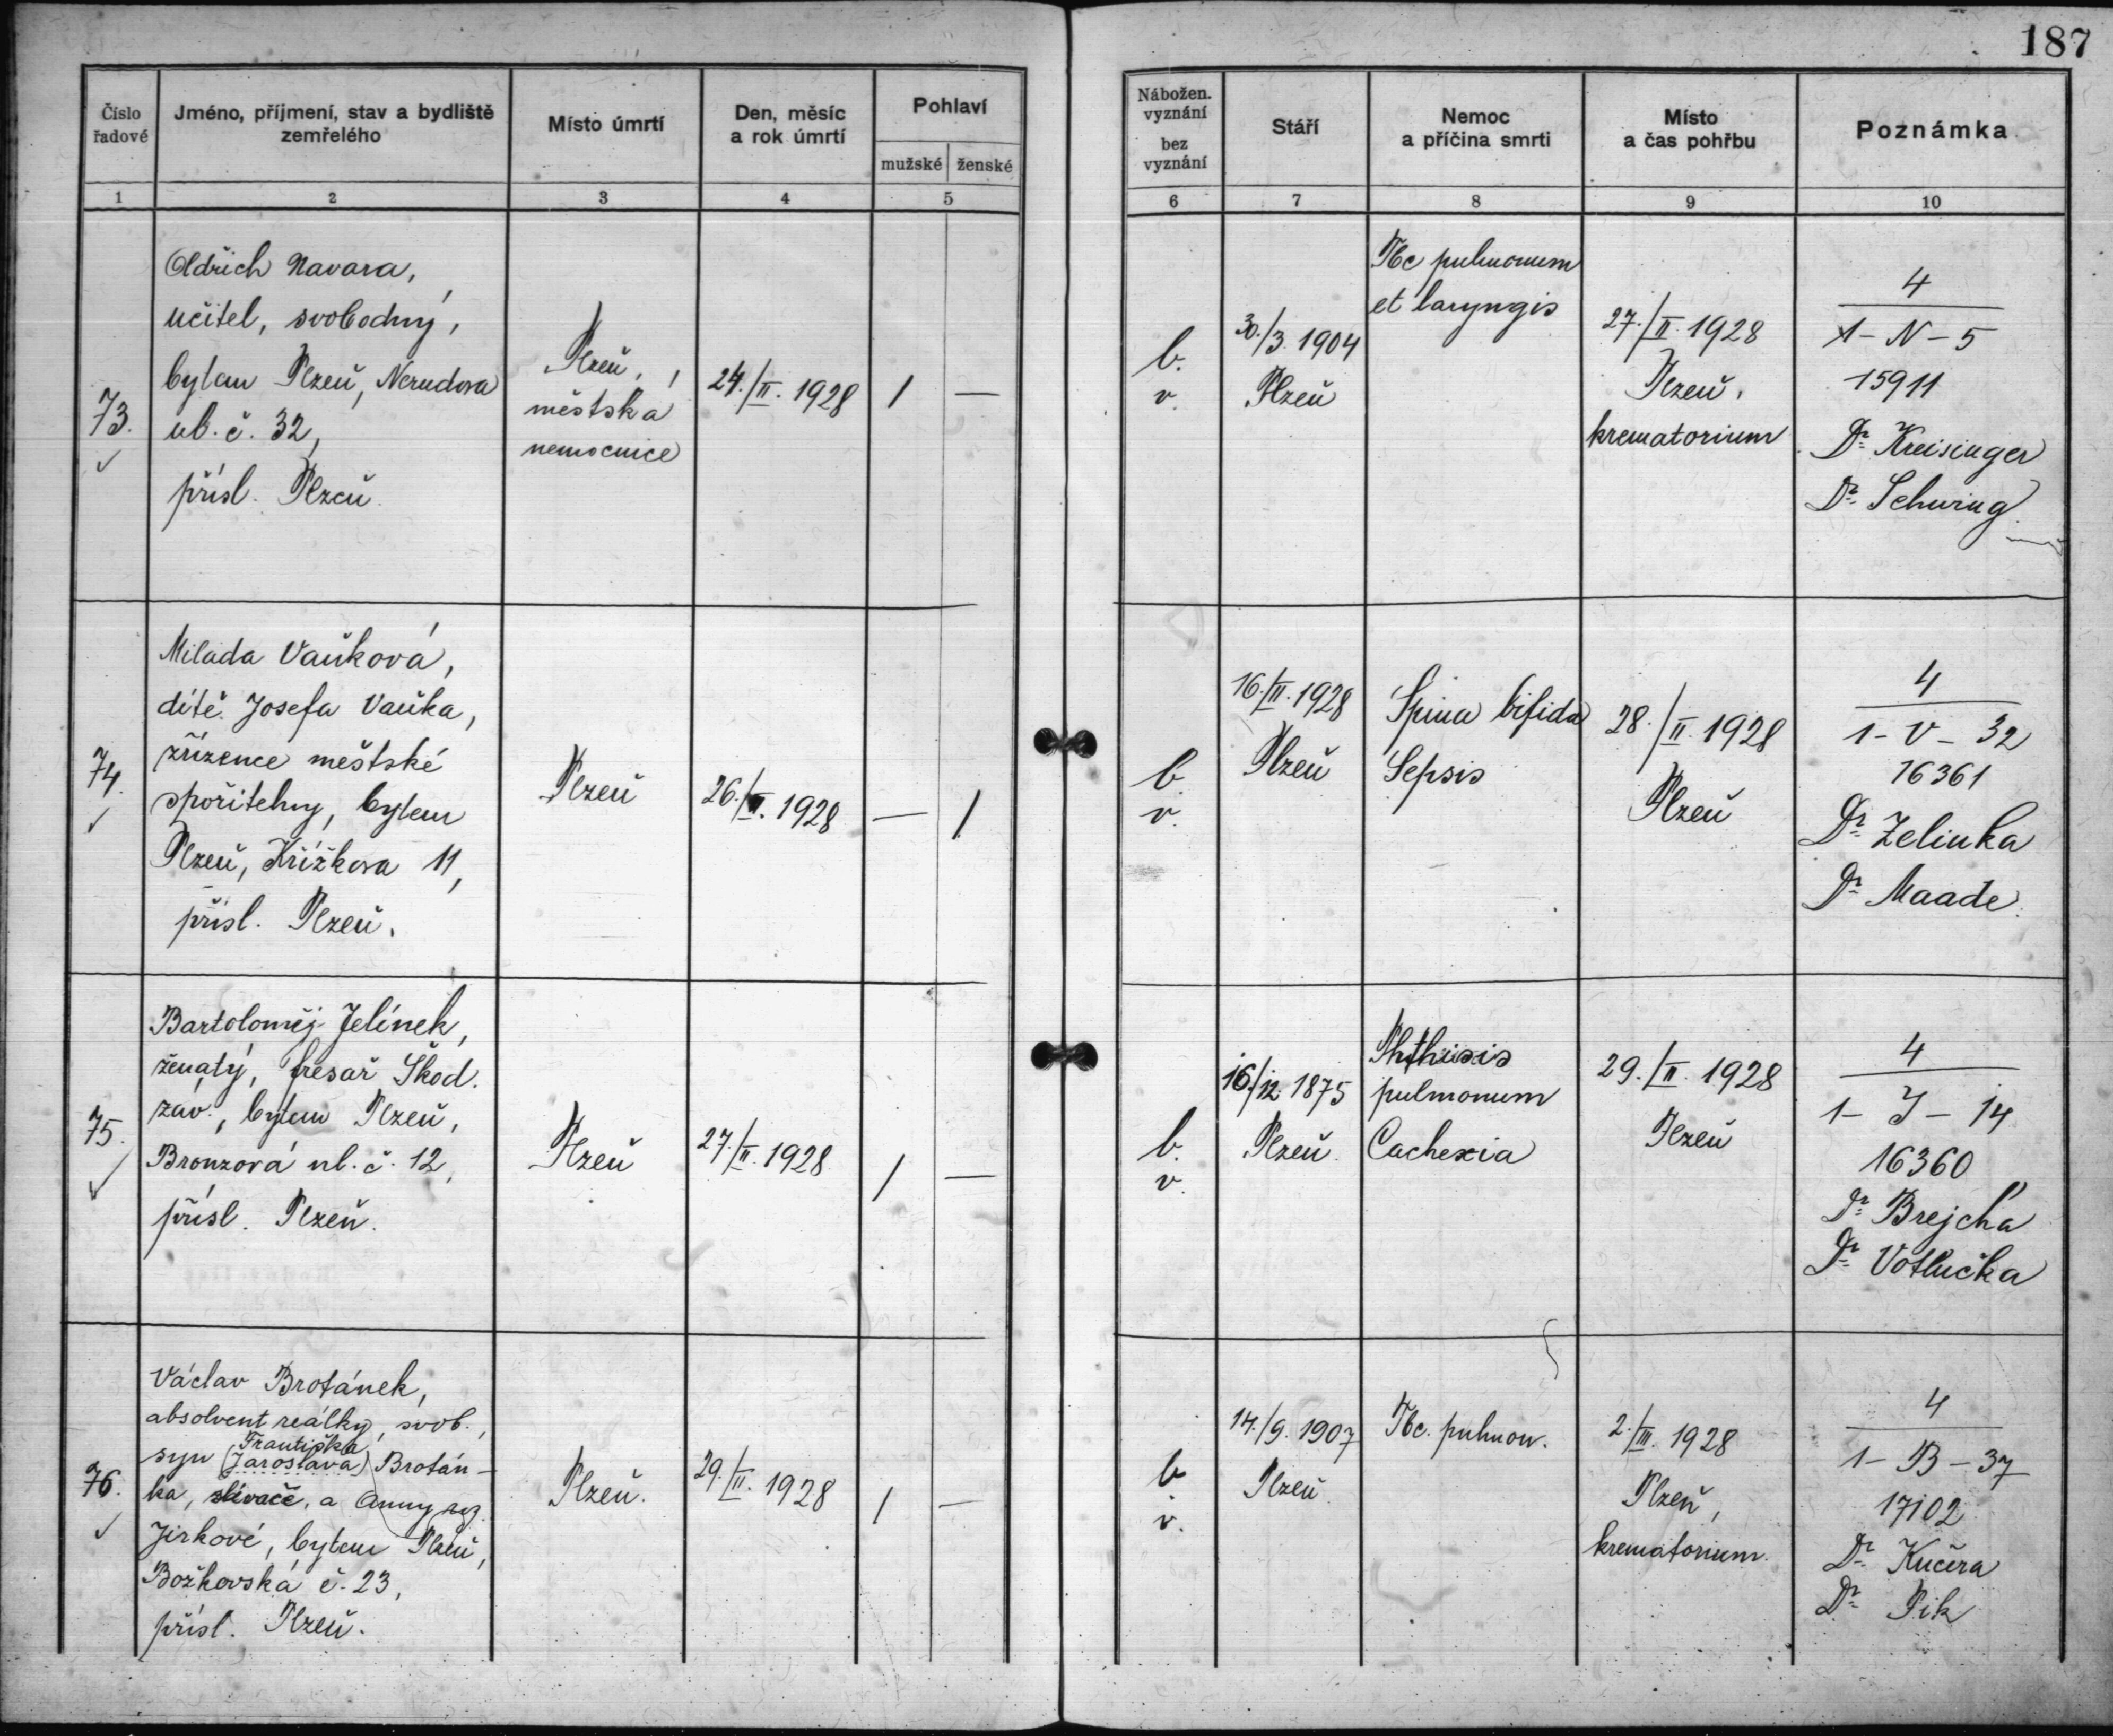 187
Číslo
řadové
Jméno, příjmení, stav a bydliště
zemřelého
Místo úmrtí
Den, měsíc
a rok úmrtí
Pohlaví
mužské
ženské
Nábožen.
vyznání
bez
vyznání
Stáří
Nemoc
a příčina smrti
Místo
a čas pohřbu
Poznámka
1
2
3
4
5
6
7
8
9
10
73.
Oldřich Navara,
učitel, svobodný,
bytem Plzeň, Nerudova
ul. č. 32,
přísl. Plzeň.
Plzeň,
městská
nemocnice
24./II. 1928
1
—
b.
v.
30./3. 1904
Plzeň
Tbc pulmonum
et laryngis
27./II. 1928
Plzeň,
krematorium
4
1-N-5
15911
Dr. Kreisinger
Dr. Schwing
74.
Milada Vaňková,
dítě Josefa Vaňka,
zřízence městské
spořitelny, bytem
Plzeň, Křížkova 11,
přísl. Plzeň.
Plzeň
26./II. 1928
—
1
b.
v.
16./II. 1928
Plzeň
Spina bifida
Sepsis
28./II. 1928
Plzeň
4
1-V-32
16361
Dr. Zelinka
Dr. Maade.
75.
Bartoloměj Jelínek,
ženatý, fresař Škod.
záv., bytem Plzeň,
Bronzová ul. č. 12,
přísl. Plzeň.
Plzeň
27./II. 1928
1
—
b.
v.
16./12. 1875
Plzeň.
Phthisis
pulmonum
Cachexia
29./II. 1928
Plzeň
4
1-J-14
16360
Dr. Brejcha
Dr. Votlučka
76.
Václav Brotánek,
absolvent reálky, svob.,
Františka
syn (Jaroslava) Brotán-
ka, slévače, a Anny roz.
Jirkové, bytem Plzeň,
Božkovská č. 23,
přísl. Plzeň.
Plzeň.
29./II. 1928
1
—
b.
v.
14./9. 1907
Plzeň.
Tbc. pulmon.
2./III. 1928
Plzeň,
krematorium.
4
1-B-37
17102
Dr. Kučera
Dr. Pik